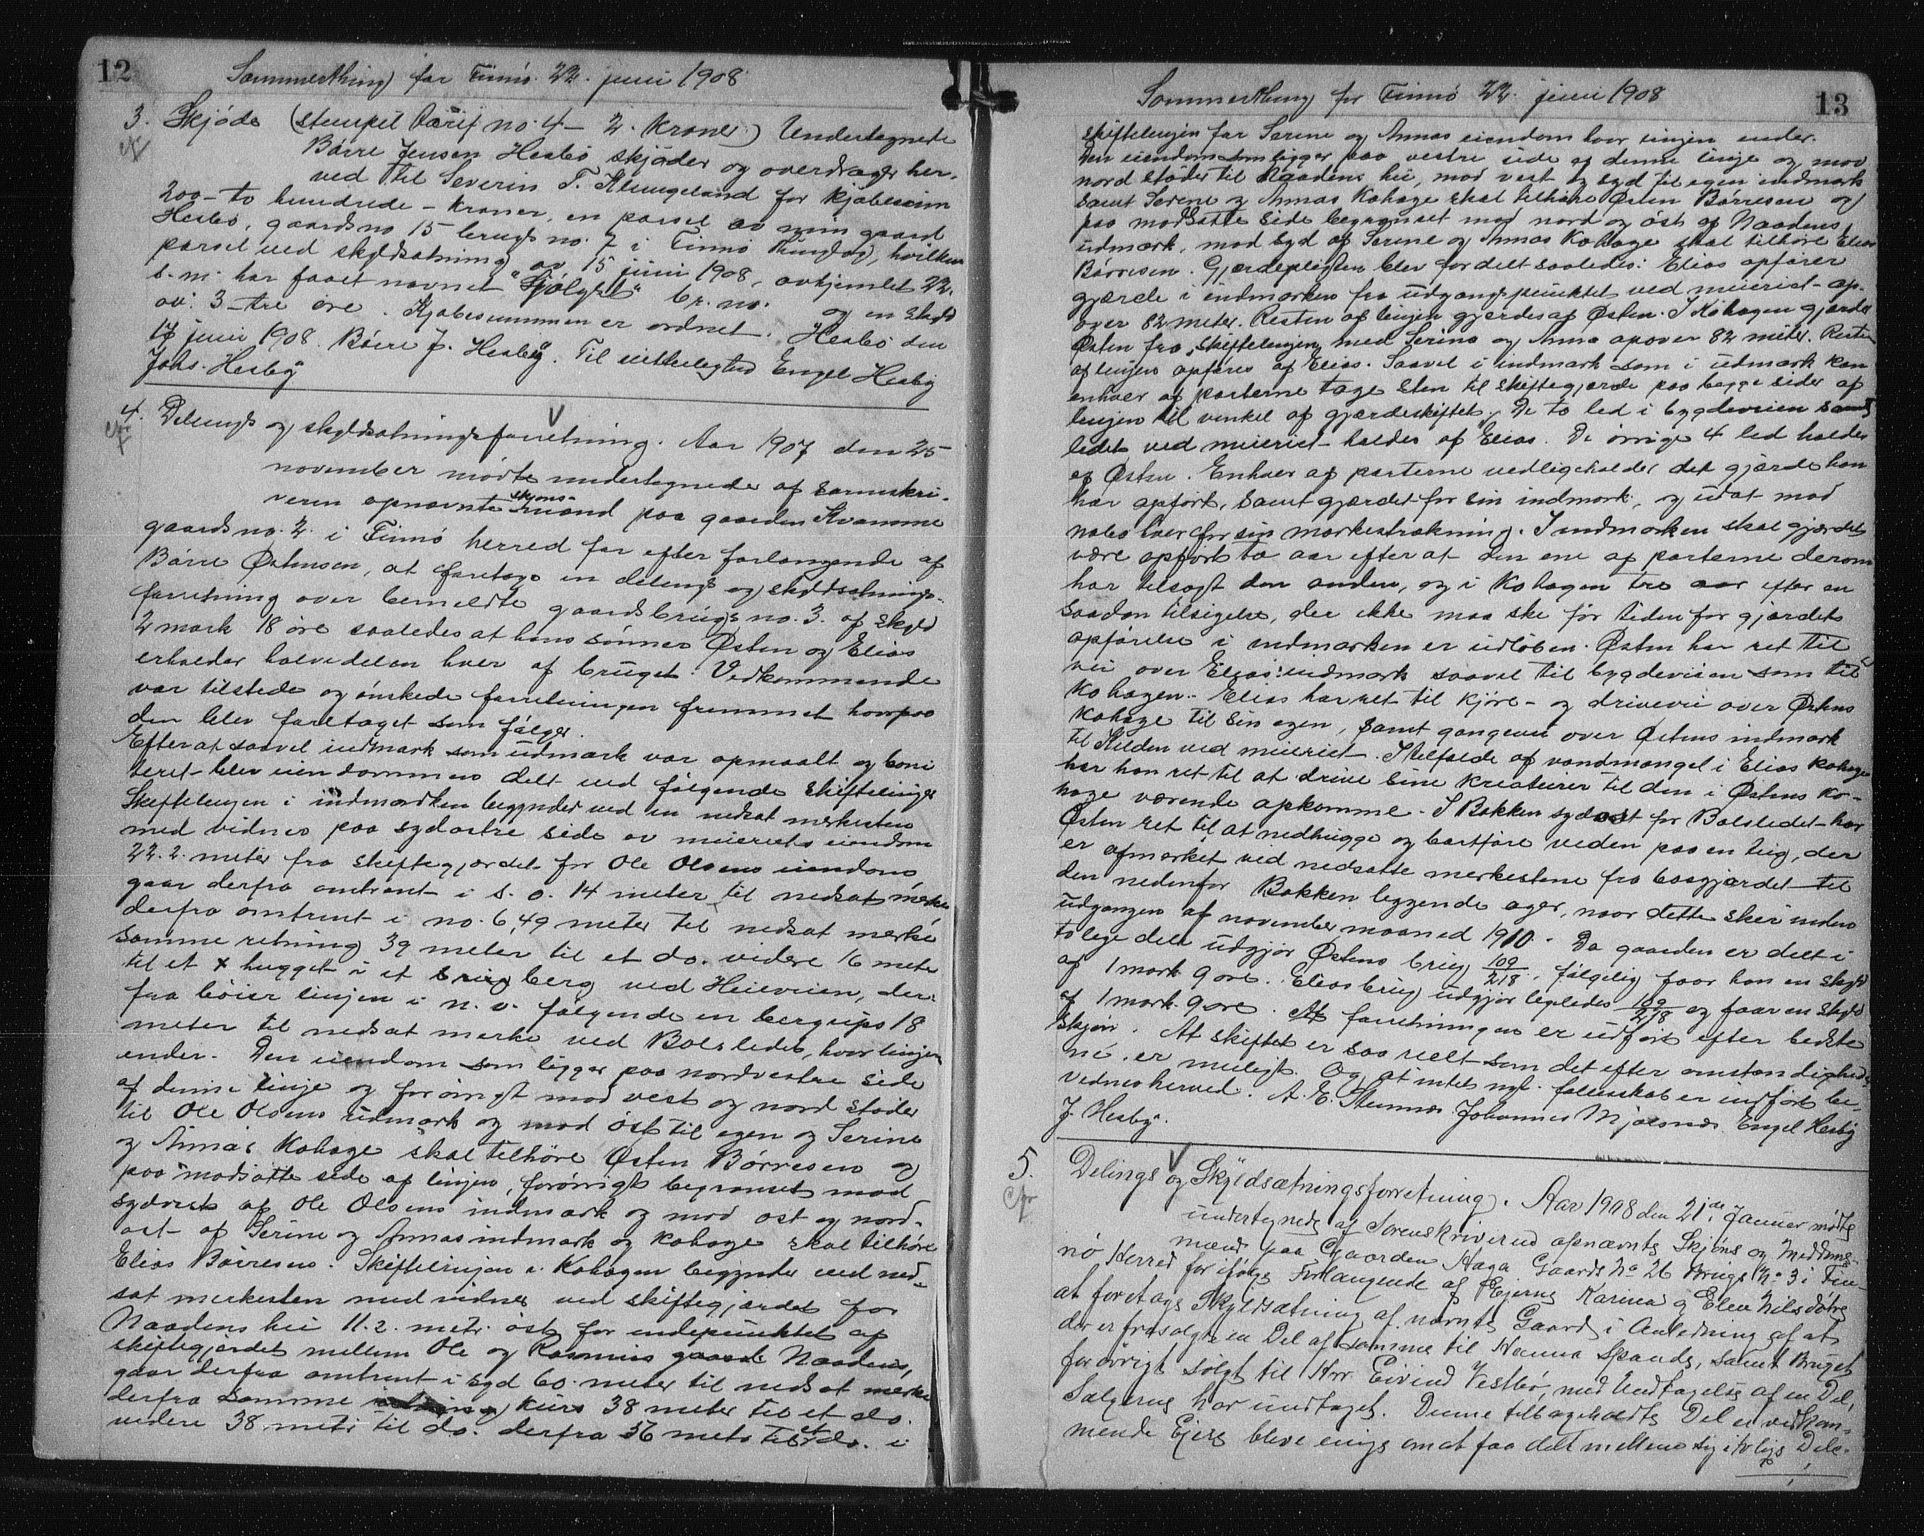 12
Sommerthing for Finnö 22. juni 1908
3. Skjöde (stempel tarif no. 4 – 2. kroner) Undertegnede
Börre Jensen Hesbö skjöder og overdrager her-
ved til Severin T. Klungeland for kjöbesum
200 – to hundrede – kroner, en parsel av min gaard
Hesbö, gaardsno 15 brugs no. 7 i Finnö thinglag, hvilken
parsel ved skyldsætning av 15 juni 1908, avhjemlet 22.
s. m. har faaet navnet br. no. og en skyld
av: 3 – tre öre. Kjöbesummen er ordnet. Hesbö den
17 juni 1908. Börre J. Hesby. Til vitterlighed Engel Hesby
Johs. Hesby
4. Delings og skyldsætningsforretning. Aar 1907 den 25
november mödte undertegnede af sorenskri-
veren opnævnte skjöns-mænd paa gaarden Kvamme
gaards no. 2. i Finnö herred for efter forlangende af
Börre Östensen, at foretage en delings og skyldsætnings-
forretning over bemeldte gaards brugs no. 3. af skyld
2 mark 18 öre saaledes at hans sönner Östen og Elias
erholder halvedelen hver af bruget. Vedkommende
var tilstede og önskede forretningen fremmet hvorpaa
den blev foretaget som fölger.
Efterat saavel indmark som udmark var opmaalt og boni
teret blev eiendommen delt ved fölgende skiftelinjer
Skiftelinjen i indmarken begynder ved en nedsat merkesten
med vidner paa sydöstre side av meieriets eiendom
22.2. meter fra skiftegjærdet for Ole Olsens eiendom
gaar derfra omtrent i s. ö. 14 meter til nedsat merke
derfra omtrent i nö. 6,49 meter til nedsat merke
samme retning 39 meter til et do. videre 16 meter
til et x hugget i et berg ved Heieveien, der-
fra böier linjen i n. v. fölgende en bergrips 18
meter til nedsat merke ved Bolsledet, hvor linjen
ender. Den eiendom som ligger paa nordvestre side
af denne linje og forövrigt mod vest og nord stöder
til Ole Olsens udmark og mod öst til egen og Serine
og Annas Kohage skal tilhöre Östen Börresen og
paa modsatte side af linjen, forövrigt begrænset mod
sydvest af Ole Olsens indmark og mod öst og nord-
öst af Serine og Annas indmark og kohage skal tilhöre
Elias Börresen. Skiftelinjen i Kohagen begynder ved ned-
sat merkesten med vidner ved skiftegjærdet for
Naadens hei 11.2. metr. öst for endepunktet af
skiftegjærdet mellem Ole og Rasmus Naaden,
gaar derfra omtrent i syd 60. meter til nedsat merke
derfra samme kurs 38 meter til et do.
videre 38 metr til do. derfra 36 metr til et do. i
13
Sommerthing for Finnö 22. juni 1908
skiftelinjen for Serine og Annas eiendom hvor linjen ender.
Den eiendom som ligger paa vestre side af denne linje og mod
nord stöder til Naadens hei, mod vest og syd til egen indmark
samt Serine og Annas Kohage skal tilhöre Östen Börresen og
paa modsatte side begrænset mod nord og öst af Naadens
udmark, mod syd af Serine og Annas Kohage skal tilhöre Elias
Börresen. Gjærdepligten blev fordelt saaledes: Elias opförer
gjærde i indmarken fra udgangspunktet ved meieriet op-
over 82 meter. Resten af linjen gjærdes af Östen. I Kohagen gjærder
Östen fra skiftelinjen med Serine og Anna opover 82 meter. Resten
af linjen opföres af Elias. Saavel i indmark som i udmark kan
enhver af parterne tage sten til skiftegjærde paa begge sider af
linjen til vinkel af gjærdeskiftet. De to led i bygdeveien samt
ledet ved meieriet holdes af Elias. De övrige 4 led holdes
af Östen. Enhver af parterne vedligeholder det gjærde han
har opfört, samt gjærdet for sin indmark, og udat mod
nabo hver for sin markestrækning. I indmarken skal gjærdet
være opfört to aar efter at den ene af parterne derom
har tilsagt den anden, og i Kohagen tre aar efter en
saadan tilsigelse, der ikke maa ske för tiden for gjærdets
opförelse i indmarken er udlöben. Östen har ret til
vei over Elias indmark saavel til bygdeveien som til
Kohagen. Elias har ret til kjöre- og drivevei over Östens
Kohage til sin egen, samt gangvei over Östens indmark
til Kilden ved meieriet. I tilfælde af vandmangel i Elias kohage
har han ret til at drive sine kreaturer til den i Östens ko-
hage værende opkomme. I Bakken sydöst for Bolsledet har
Östen ret til at nedhugge og bortföre veden paa en teig, der
er afmerket ved nedsatte merkestene fra bögjærdet til
den nedenfor Bakken liggende ager, naar dette sker inden
udgangen af november maaned 1910. Da gaarden er delt i
to lige dele udgjör Östens brug 109/218, fölgelig faar han en skyld
af 1 mark 9 öre. Elias brug udgjör ligeledes 109/218 og faar en skyld
af 1 mark 9 öre. At forretningen er udfört efter bedste
skjön. At skiftet er saa reelt som det efter omstændighed
ne er muligt. Og at intet nyt fællesskab er indfört be-
vidnes herved. A. E. Johannes Mjölsnæs Engel Hesby
J. Hesby.
5. Delings og Skyldsætningsforretning. Aar 1908 den 21de Januar mödte
undertegnede af Sorenskriveren opnævnte Skjöns og Meddoms-
mænd paa Gaarden Haga Gaards No 26 Brugs No 3 i Fin-
nö Herred for ifölge Forlangende af Eierne Karina og Elen Nilsdötre
at foretage Skyldsætning af nævnte Gaard i Anledning af at
der er frasolgt en Del af samme til Hanna Spande, samt Bruget
forövrigt solgt til Hr. Eivind Vestbö, med Undtagelse af en Del,
Sælgerne har undtaget. Denne tilbageholdte Del er vedkom-
mende Eiere bleve enige om at faa delt mellem sig i to lige Dele.